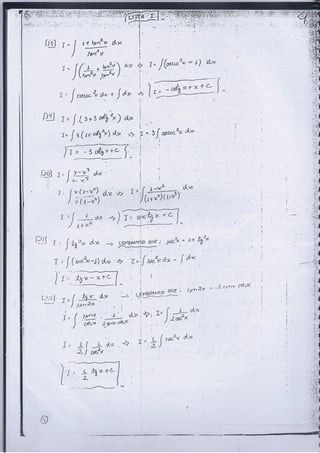 LISTA I
18 I = ∫ (1 + sen²x)/sen²x dx
I = ∫ (1/sen²x + sen²x/sen²x) dx ⇒ I = ∫ (cosec²x + 1) dx
I = ∫ cosec²x dx + ∫ dx ⇒ I = -cotg x + x + C
19 I = ∫ (3 + 3 cotg²x) dx
I = 3 ∫ (1 + cotg²x) dx ⇒ I = 3 ∫ cosec²x dx
I = -3 cotg x + C
20 I = ∫
I = ∫ ⇒ I = ∫ (1-x²)/((1+x²)(1-x²)) dx
I = ∫ 1/(1+x²) dx ⇒ I = arctg x + C
21 I = ∫ tg²x dx → LEMBRANDO QUE: sec²x = 1 + tg²x
I = ∫ (sec²x - 1) dx ⇒ I = ∫ sec²x dx - ∫ dx
I = tg x - x + C
22 I = ∫ tg x/sen 2x dx → LEMBRANDO QUE: sen 2x = 2 sen x cos x
I = ∫ sen x/cos x · 1/(2 sen x cos x) dx ⇒ I = ∫ 1/(2 cos²x) dx
I = 1/2 ∫ 1/cos²x dx ⇒ I = 1/2 ∫ sec²x dx
I = 1/2 tg x + C